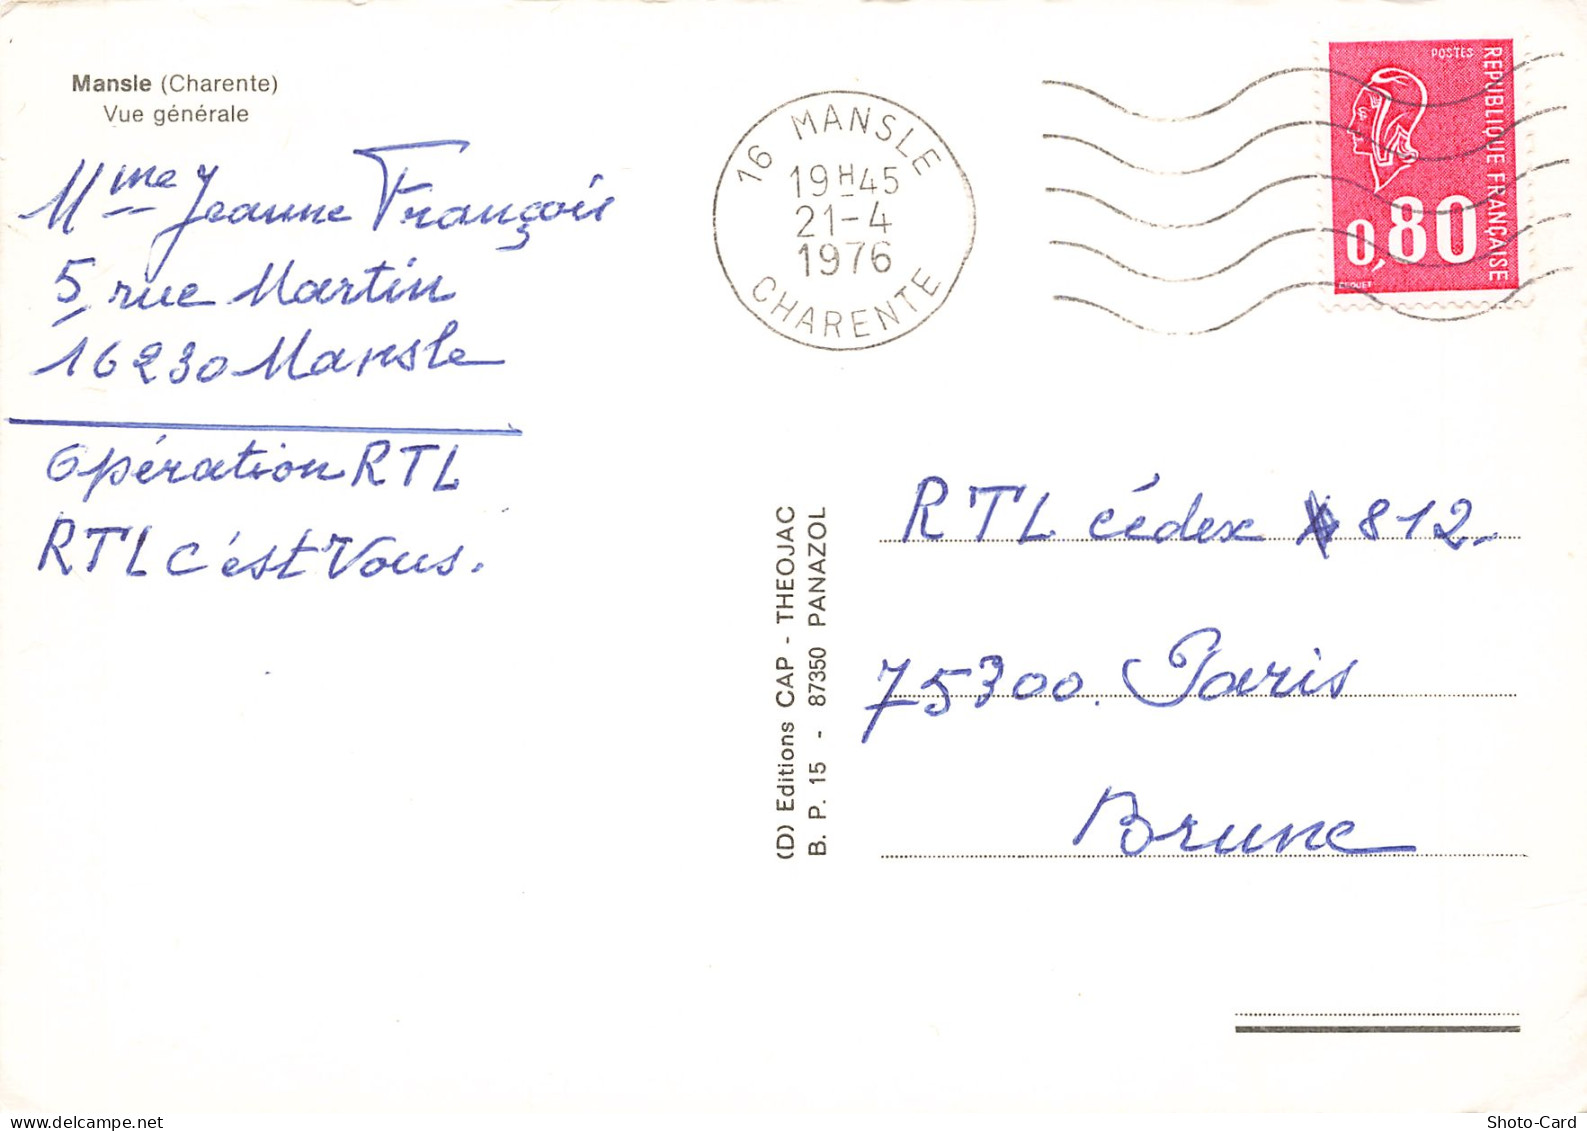 Mansle (Charente)
Vue générale
Mme Jeanne François
5, rue Martin
16230 Mansle
Opération RTL
RTL c'est Vous.
16 MANSLE
19H45
21-4
1976
CHARENTE
POSTES
REPUBLIQUE FRANÇAISE
0,80
(D) Editions CAP - THEOJAC
B. P. 15 - 87350 PANAZOL
RTL cédex 812.
75300. Paris
Brune
delcampe.net
Shoto-Card